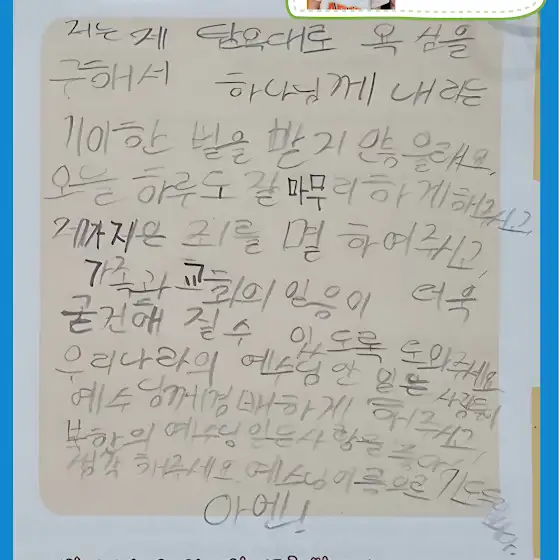 저는 제 탐욕대로 욕심을
구해서 하나님께 내리는
기이한 벌을 받지 않을래요.
오늘 하루도 잘 마무리하게 해주시고,
지은 죄를 멸하여주시고,
가족과 교회의 믿음이 더욱
굳건해 질 수 있도록 도와주세요
우리나라의 예수님 안 믿는 사람들이
예수님께 경배하게 해주시고,
북한의 예수님 믿는 사람들
생각해주세요 예수님 이름으로 기도
아멘!